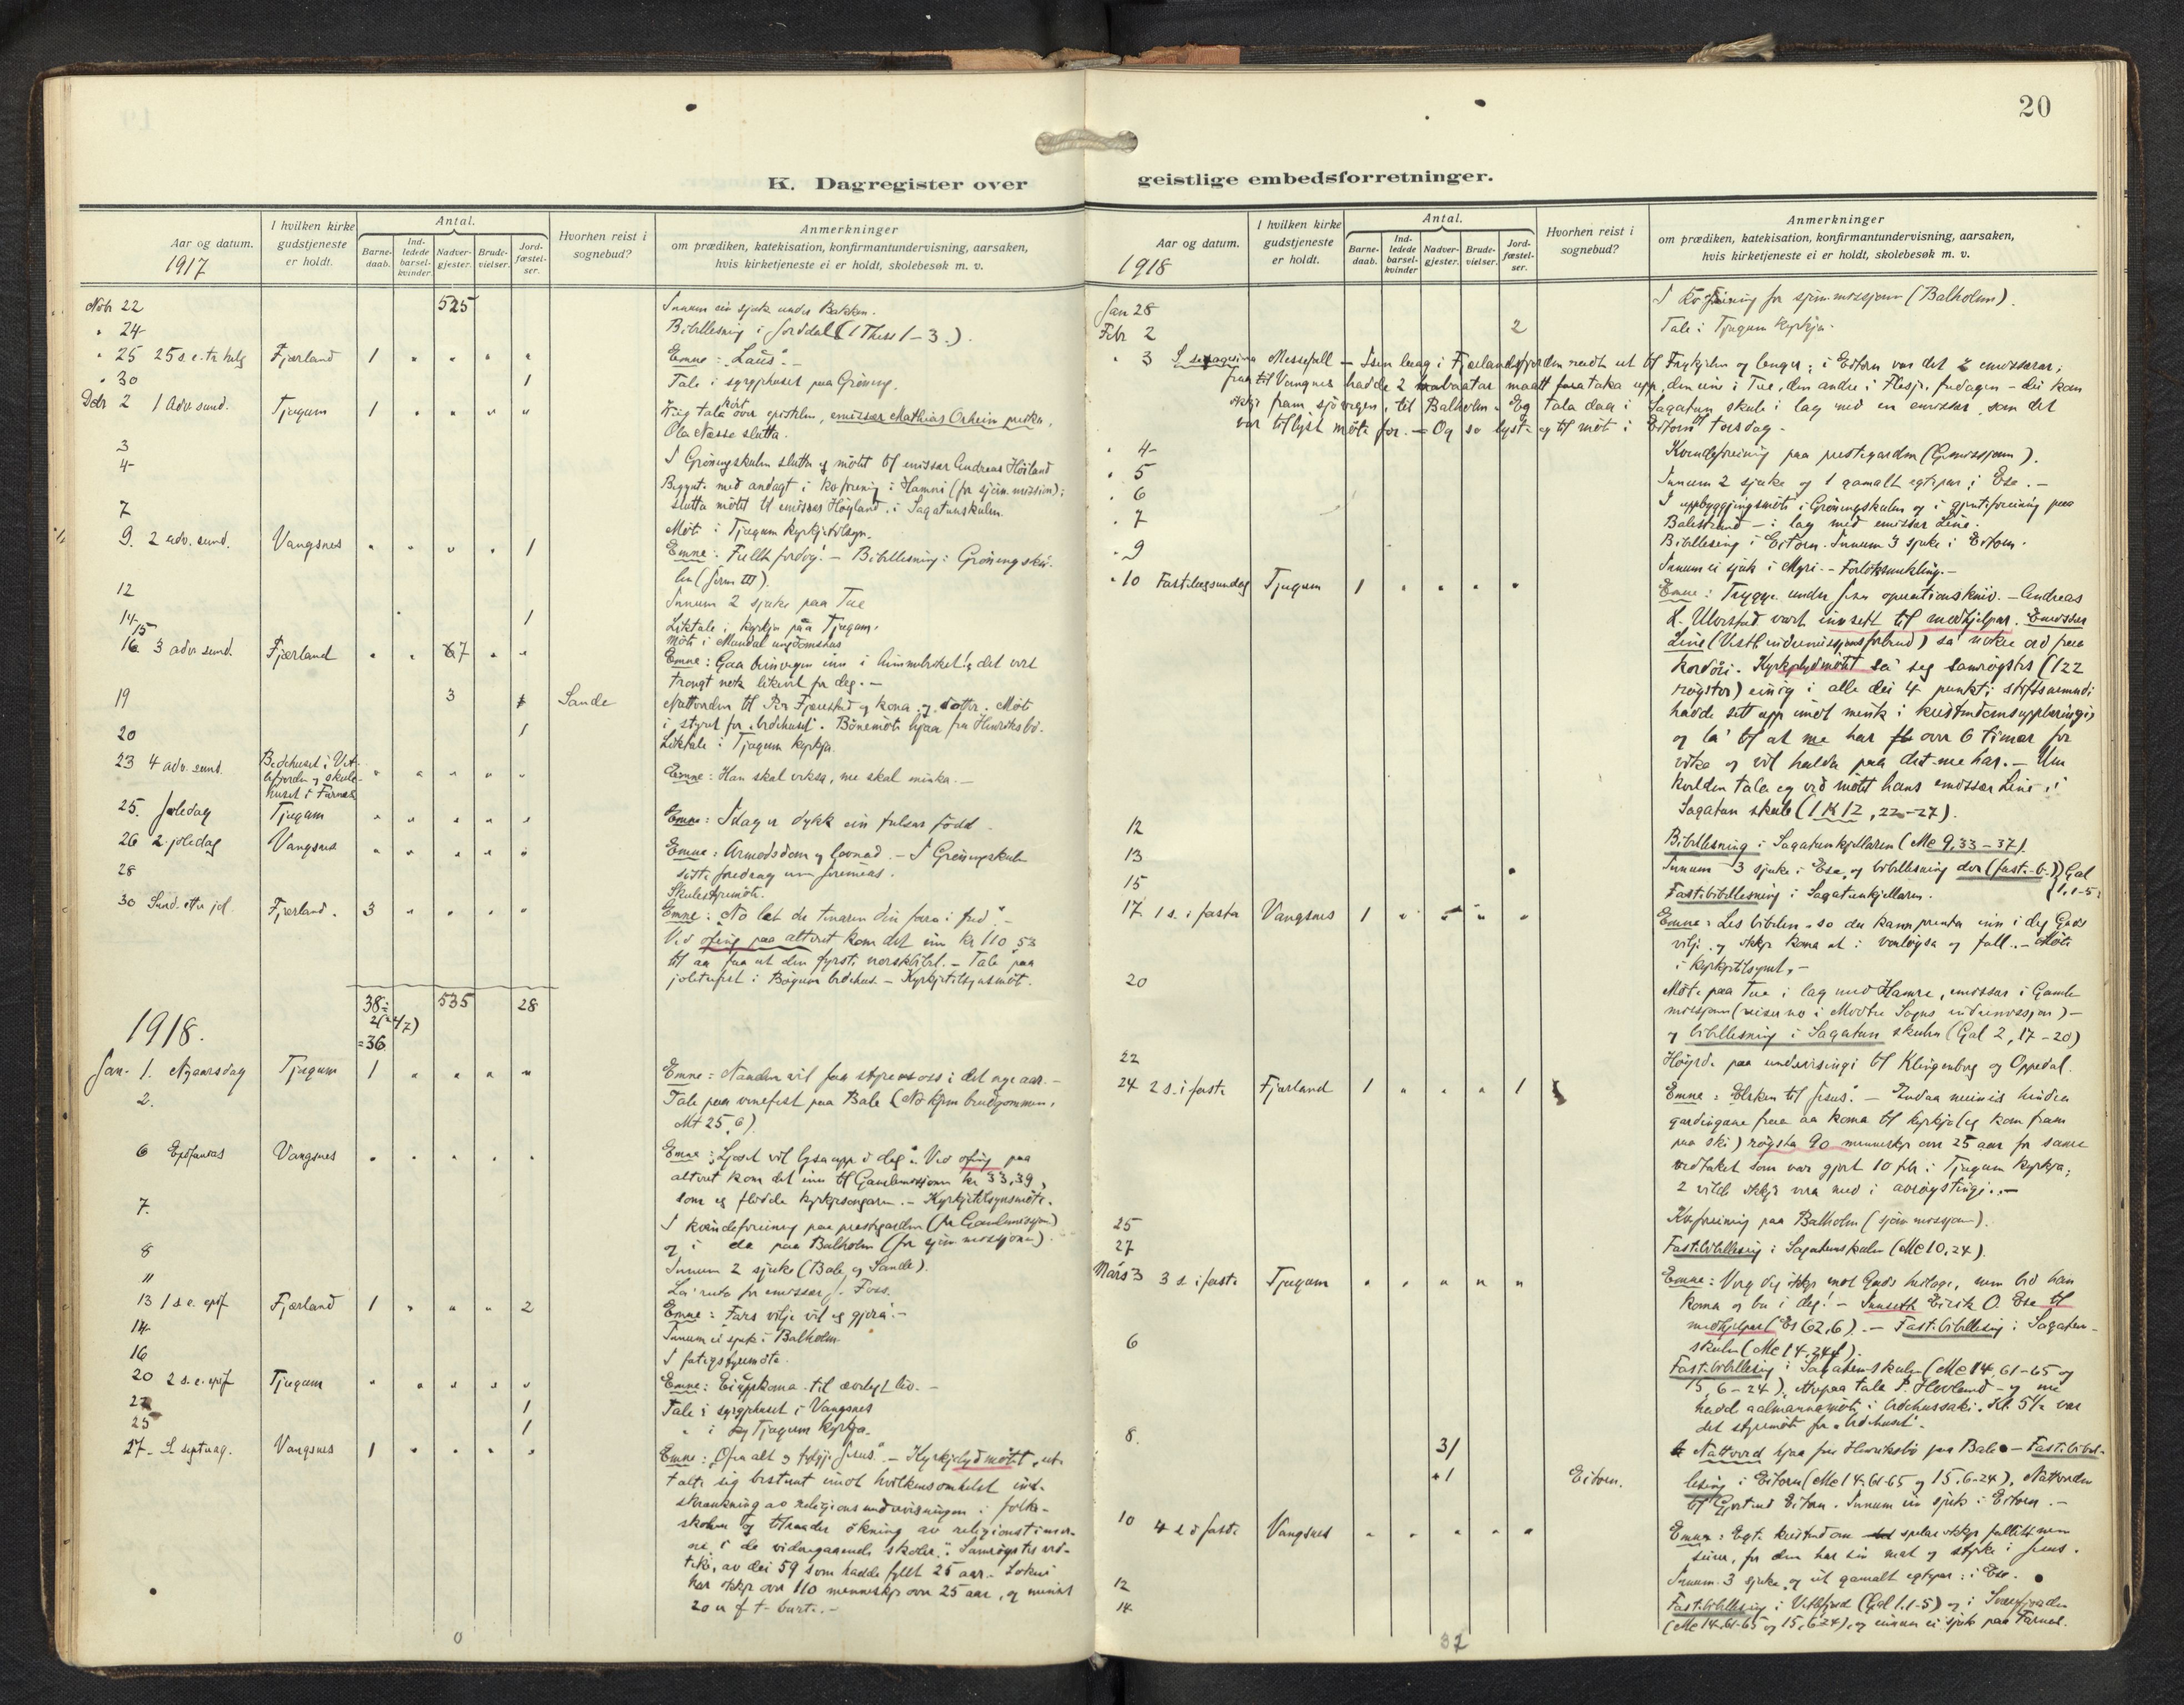 20
K. Dagregister over
geistlige embedsforretninger.
Aar og datum.
1917
I hvilken kirke
gudstjeneste
er holdt.
Antal.
Barne-
daab.
Ind-
ledede
barsel-
kvinder.
Nadver-
gjester.
Brude-
vielser.
Jord-
fæstel-
ser.
Hvorhen reist i
sognebud?
Anmerkninger
om prædiken, katekisation, konfirmantundervisning, aarsaken,
hvis kirketjeneste ei er holdt, skolebesøk m. v.
Nobr 22 525 Innum ein sjuk under Bakken.
" 24 Bibellesning i Jorddal (1 Thess 1-3.).
" 25 25 s. e. tr. helg Fjærland 1 " " " " Emne: "Laus". -
" 30 1 Tale i syrgjehuset paa Grøneng.
Debr 2 1 Adv. sund. Tjugum 1 " " " " tala kort over epistelen, emissær Mathias Orheim preika,
Ola Næsse slutta.
3 I Grøningskulen slutta eg møtet til emissær Andreas Höiland
4 Begynte med andagt i kv.forening i Hamri (for sjöm.mission);
slutta møtet til emissær Høyland i Sagatunskulen.
7 Møte i Tjugum kyrkjetilsyn.
9. 2 adv. sund. Vangsnes " " " " 1 Emne: Fullt fordøy! - Bibellesning: Grøningsku-
len (Jerm III).
12 Innum 2 sjuke paa Tue
14 1 Liktale i kyrkja paa Tjugum.
15 Møte i Mundal ungdomshus
16 3 adv. sund. Fjærland " " 67 " " Emne: Gaa beinvegen inn i himmelriket! det vert
trongt nok likevel for deg. -
19 3 Sande Nattverden til Per Fjærestad og kona og dotter. Møte
i styret for "bedehuset". Bönemöte hjaa fru Henriksbø.
20 1 Liktale i Tjugum kyrkja.
23 4 adv. sund. Bedehuset i Vet-
lefjorden og skule-
huset i Farnes " " " " " Emne: Han skal veksa, me skal minka. -
25. Joledag Tjugum " " " " " Emne: Idag er dykk ein frelsar född.
26 2 joledag Vangsnes " " " " " Emne: Armodsdom og lovnad. - I Grøningskulen
siste foredrag um Jeremias.
28 Skulestyremöte.
30 Sund. etter jol Fjærland. 3 " " " " Emne: "No let du tenaren din fara i fred". -
Ved ofring paa alteret kom det inn kr 110,53
til aa faa ut den fyrste norskbibel. - Tale paa
joletrefest i Bøyum bedehus. - Kyrkjetilsynsmöt.
38÷ 535 28
2(
= 36
1918.
Jan. 1. Nyaarsdag Tjugum 1 " " " " Emne: Nanden vil faa styra oss i det nye aar. -
2. Tale paa vinefest paa Bale (No kjem brudgommen,
Mt 25,6).
6 Epifanias Vangsnes " " " " " Emne: "Ljoset vil lysa upp i deg". Ved ofring paa
alteret kom det inn til Gamlemissjonen kr 33,39,
som eg flidde kyrkjesongaren. - Kyrkjetilsynsmøte.
7. I kvendeforening paa prestgarden (for Gamlemissjon)
og i do paa Balholm (for sjömmissjonen).
8 Innum 2 sjuke (Bale og Sande).
11 Foss.
13 1 s. e. epif. Fjærland 1 " " " 2 Emne: "Fars vilje vil eg gjera". -
14 Innum ei sjuk i Balholm
16 I fatigstyremöte.
20 2 s. e. epif. Tjugum " " " " " Emne: Ei uppkoma til ævelegt liv. -
1 Tale i syrgjehuset i Vangsnes
25 1 " i Tjugum kyrkja.
27 S. septuag. Vangsnes 1 " " " " Emne: "Ofra alt og fylgje Jesus". - Kyrkjelydmötet ut-
talte sig bestemt imot hvilkensomhelst ind-
skrænkning av religionsundervisningen i folke-
skolen og tilraader ökning av religionstimer-
ne i de videregaaende skoler." Samrøystes ved-
teke, av dei 59 som hadde fyllt 25 aar. Sokni
har ikkje over 110 menneskje over 25 aar, og minst
20 u. f. t. burte. -
0
Aar og datum.
1918
I hvilken kirke
gudstjeneste
er holdt.
Antal.
Barne-
daab.
Ind-
ledede
barsel-
kvinder
Nadver-
gjester.
Brude-
vielser.
Jord-
fæstel-
ser.
Hvorhen reist i
sognebud?
Anmerkninger
om prædiken, katekisation, konfirmantundervisning, aarsaken,
hvis kirketjeneste ei er holdt, skolebesøk m. v.
Jan 28 I kv.forening for sjömmissjonen (Balholm).
Febr 2 2 Tale i Tjugum kyrkja.
" 3 S. sexagesima Messefall - Isen laag i Fjærlandsfjorden reidt ut til og lenger; i Eitorn var det 2 emissærar;
fraa til Vangnes hadde 2 maatt taka upp, den eine i Tue, den andre i Flesje, fredagen - dei kom
ikkje fram sjövegen til Balholm. Eg tala daa i Sagatun skule i lag med en emissær, som det
var tillyst möte for. - Og so lyste eg til möt i Eitorn til torsdag.
" 4 Kvendeforening paa prestegarden (Gmissjonen).
" 5 Innum 2 sjuke og 1 gamalt egtepar i Ese. -
" 6 I uppbyggingsmöte i Gröningskulen og i gjenteforening paa
Balestrand - i lag med emissær Line.
" 7 Bibellesing i Eitorn. Innum 3 sjuke i Eitorn.
" 9 Innum ei sjuk i Myri. -
" 10 Fastelagsundag Tjugum 1 " " " " Emne: Trygge under operationskniv. - Andreas
L. Ulvestad vart innsett til medhjelpar. Emissær
Line (Vestl. indremissjonsforbund) sa nokre ord fraa
kordöri. Kyrkjelydmötet sa seg samröystes (122
röyster) einig i alle dei 4 punkt; stiftsnemndi
hadde sett upp imot mink i kristendomsupplæringi,
og la til at me har over 6 timar for
vika og vil halda paa det me har. - Um
kvelden tala eg ved mötet hans emissær Line i
Sagatun skule (1 K 12, 22-27).
12 Bibellesning i Sagatunkjellaren (Mc 9,33-37).
13 Innum 3 sjuke i Ese, og bibellesning der (fast.-b.) Gal
1.1-5:
15 Fastebibellesning i Sagatunkjellaren.
17 1 s. i fasta Vangsnes 1 " " " " Emne: Les bibelen - so du kann prenta inn i deg Guds
vilje og ikkje koma ut i vonløysa og fall. - Möte
i kyrkjetilsynet. -
20 Möte paa Tue i lag med Hamre, emissær i Gamle-
missjonen (reiser no i Midtre Sogns indremissjon) -
og bibellesning i Sagatun skulen (Gal 2, 17-20)
22 Høyrde paa undervisingi til Klingenberg og Oppedal.
24 2 s. i faste Fjærland 1 " " " 1 Emne: "Elsken til Jesus". - Endaa hindra
gardingane fraa aa koma til kyrkja (eg kom fram
paa ski) röysta 90 menneskje over 25 aar for same
vedtaket som var gjort 10 febr i Tjugum kyrkja;
2 vilde ikkje vera med i avröystingi. -
25 Kv.forening paa Balholm (sjömmissjon).
27 Fastebibellesing i Sagatunskulen (Mc 10,24).
Mars 3 3 s. i faste Tjugum " " " " " Emne: Verg deg ikkje mot Guds heilage, som bed han
koma og bu i deg! - Innsett Eirik O. Ese til
medhjelpar (Es 62,6). - Fastebibellesing i Sagatun-
skulen (Mc 14,24f).
6 Fastebibellesing i Sagatunskulen (Mc 14,61-65 og
15, 6-24), etterpaa tala P. Hovland - og me
hadd aalmannamöte i bedehussaki. Kl. 5½ var
det styremöte for "bedehuset".
8. 3/ Nattverd hjaa fru Henriksbø paa Bale - Fastebibel-
+1 Eitorn. lesing i Eitorn (Mc 14.61-65 og 15.6-24), Nattverden
til Gjertrud Eitorn. Innum ein sjuk i Eitorn. -
10 4 s i faste Vangsnes " " " " " Emne: Egte kristendom spelar ikkje fallitt
for den har sin mat og styrke i Jesus.
12 Innum 3 sjuke og eit gamalt egtepar i Ese.
14 Fastebibellesing i Vetlefjord (Gal 1.1-5) og i Sværefjorden
(Mc 14.61-65 og 15.6-24), og innum ei sjuk paa Farnes.
37